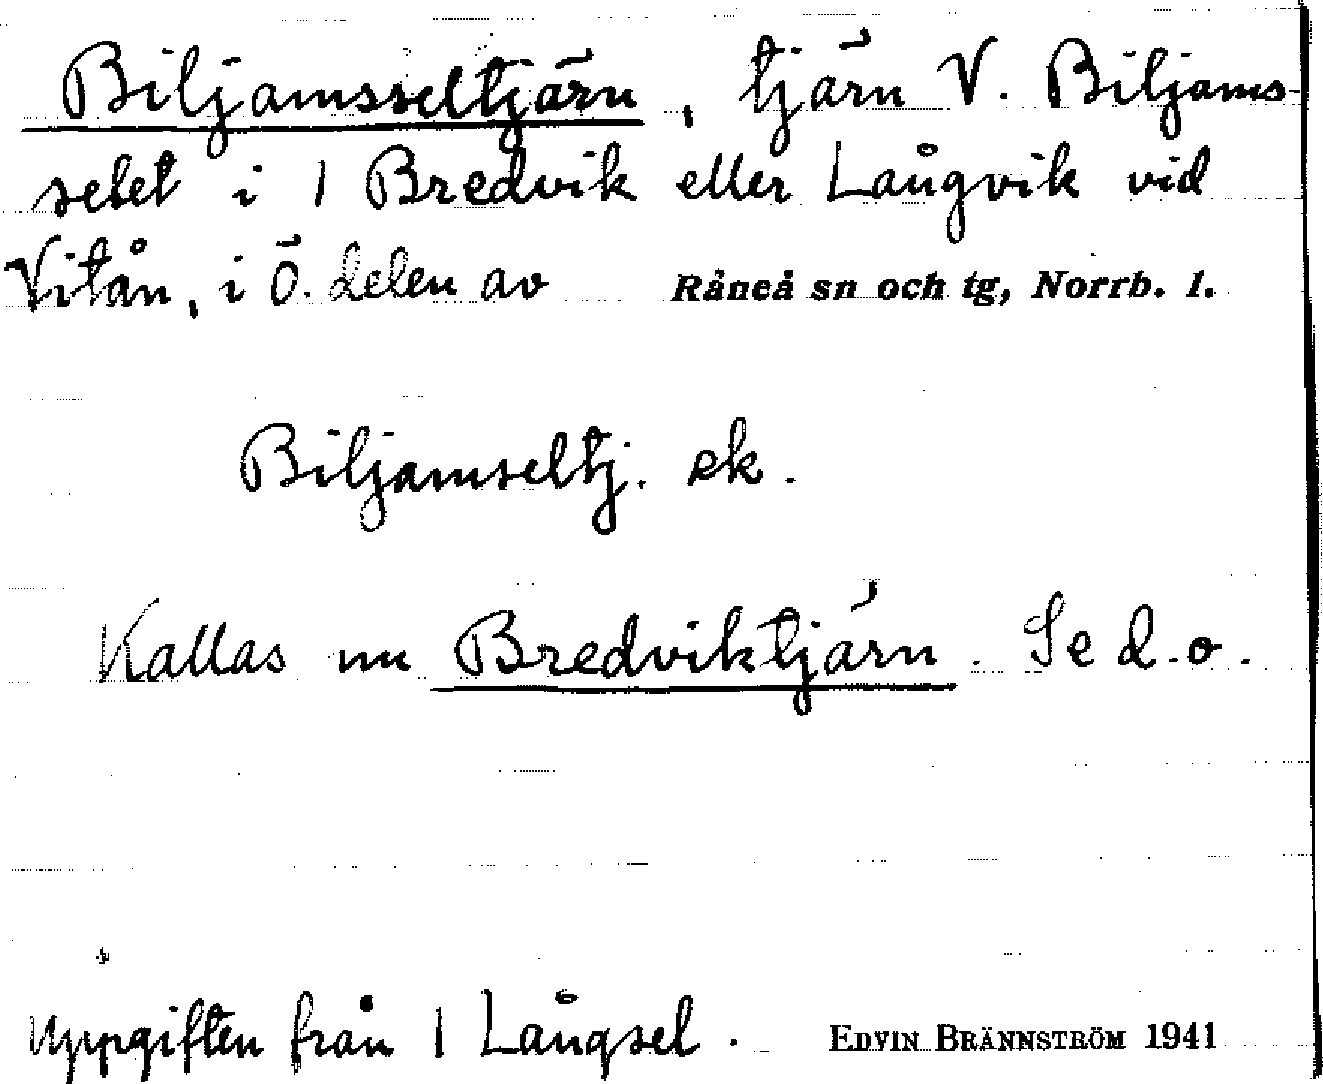 Biljamsseltjärn, tjärn V. Biljams-
selet i 1 Bredvik eller Långvik vid
Vitån, i Ö. delen av Råneå sn och tg, Norrb. l.
Biljamseltj. ek.
Kallas nu Bredviktjärn. Se d.o.
Uppgiften från 1 Långsel. EDVIN BRÄNNSTRÖM 1941